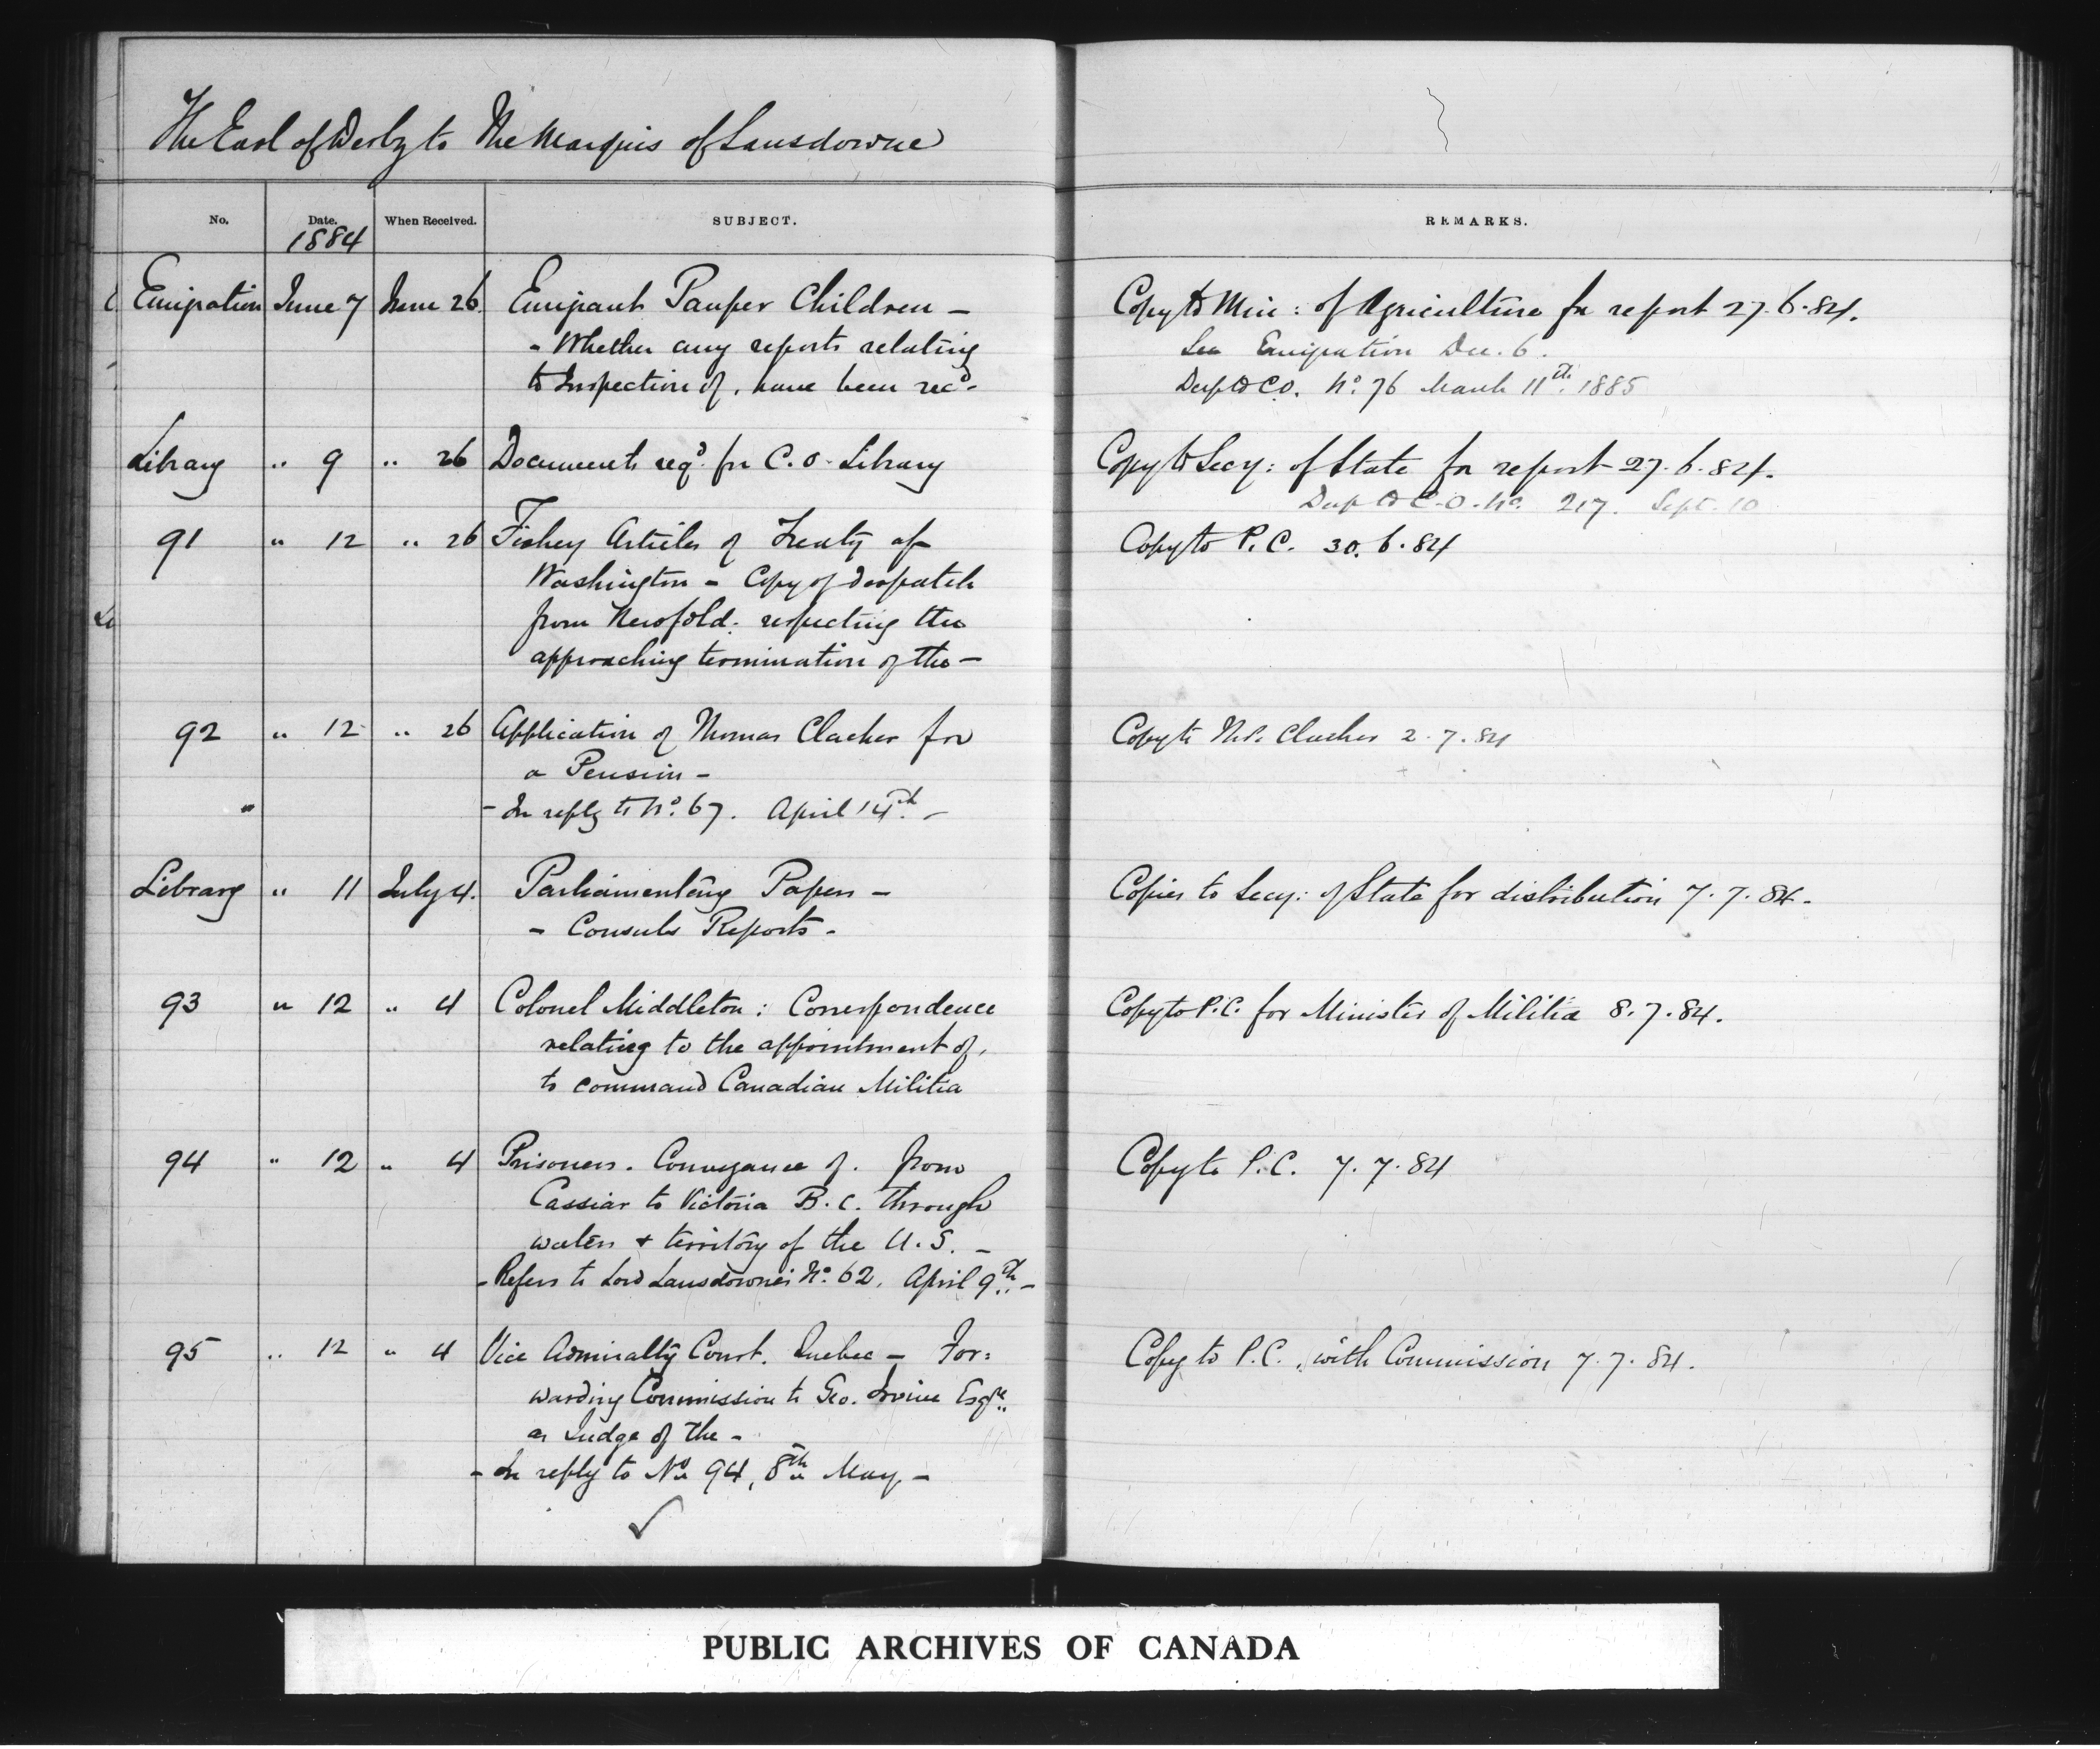 The Earl of Derby to The Marquis of Lansdowne
No. Date. When Received. SUBJECT. REMARKS.
1884
Emigration June 7 June 26. Emigrant Pauper Children — Copy to Min: of Agriculture for report 27.6.84.
- Whether any reports relating See Emigration Dec. 6.
to Inspection of, have been recd. Desp to C.O. No. 76 March 11th 1885
Library " 9 " 26 Documents reqd. for C.O. Library Copy to Secy: of State for report 27.6.84.
Desp to C.O. No. 217. Sept. 10
91 " 12 " 26 Fishery Articles of Treaty of Copy to P.C. 30.6.84
Washington - Copy of despatch
from Newfdld: respecting the
approaching termination of the —
92 " 12 " 26 Application of Thomas Clacher for Copy to Mr. Clacher 2.7.84
a Pension —
- In reply to No. 67. April 14th. —
Library " 11 July 4. Parliamentary Papers — Copies to Secy: of State for distribution 7.7.84.
- Consuls Reports -
93 " 12 " 4 Colonel Middleton: Correspondence Copy to P.C. for Minister of Militia 8.7.84.
relating to the appointment of,
to command Canadian Militia
94 " 12 " 4 Prisoners. Conveyance of. from Copy to P.C. 7.7.84
Cassiar to Victoria B.C. through
waters & territory of the U.S. —
- Refers to Lord Lansdowne's No. 62. April 9th. —
95 " 12 " 4 Vice Admiralty Court. Quebec — For: Copy to P.C. with Commission 7.7.84.
warding Commission to Geo. Irvine Esqre.
as Judge of the -
- In reply to No. 94, 8th May. —
PUBLIC ARCHIVES OF CANADA